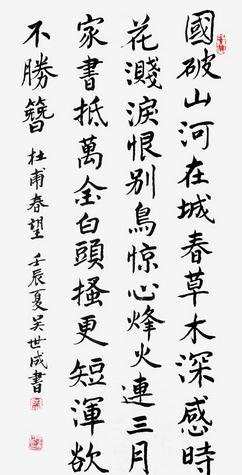 國破山河在城春草木深感時
花濺淚恨别鳥惊心烽火連三月
家書抵萬金白頭搔更短渾欲
不勝簪 杜甫春望 壬辰夏吴世成書